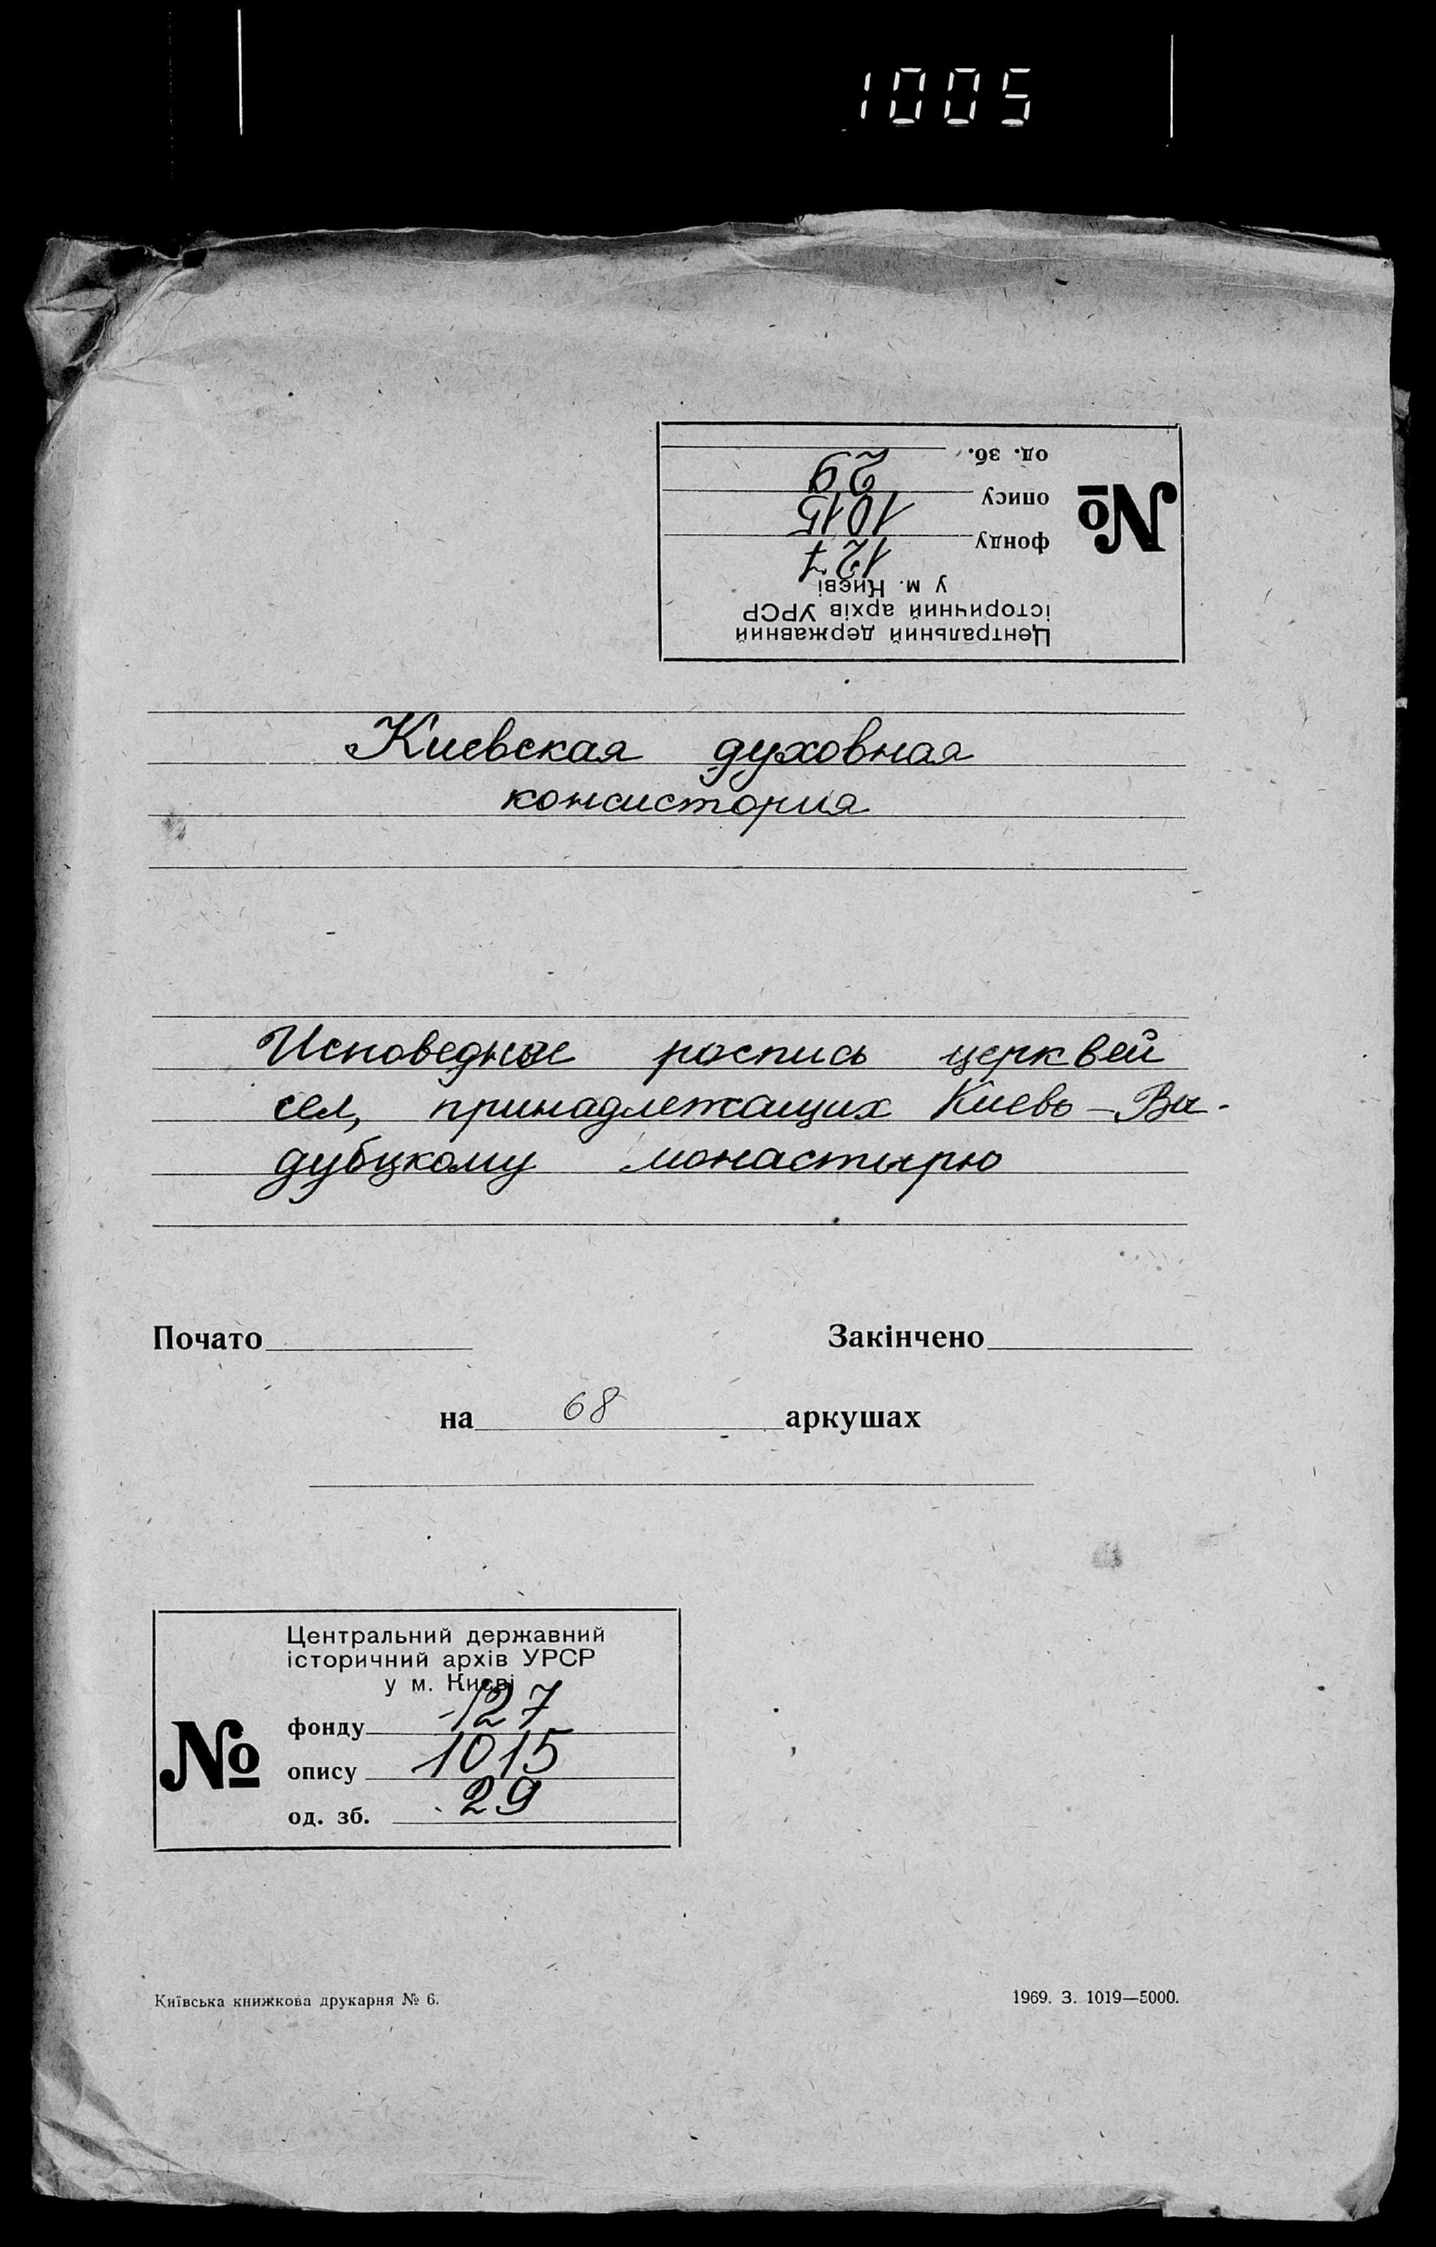 1005
од. зб. 29
опису 1015
фонду 127
у м. Києві
історичний архів УРСР
Центральний державний
№
Киевская духовная
консистория
Исповедные роспись церквей
сел, принадлежащих Киево-Вы-
дубцкому монастырю
Почато Закінчено
на 68 аркушах
Центральний державний
історичний архів УРСР
у м. Києві
№
фонду 127
опису 1015
од. зб. 29
Київська книжкова друкарня № 6. 1969. З. 1019—5000.